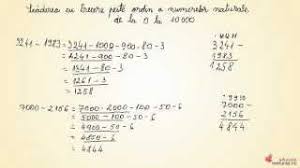 Scăderea cu trecere peste ordin a numerelor naturale
de la 0 la 10 000
3241 - 1983 = 3241-1000-900-80-3
= 2241-900-80-3
= 1341-80-3
= 1261-3
= 1258
3241 -
1983
1258
7000 - 2156 = 7000-2000-100-50-6
= 5000-100-50-6
= 4900-50-6
= 4850-6
= 4844
9 9 10
7000 -
2156
4844